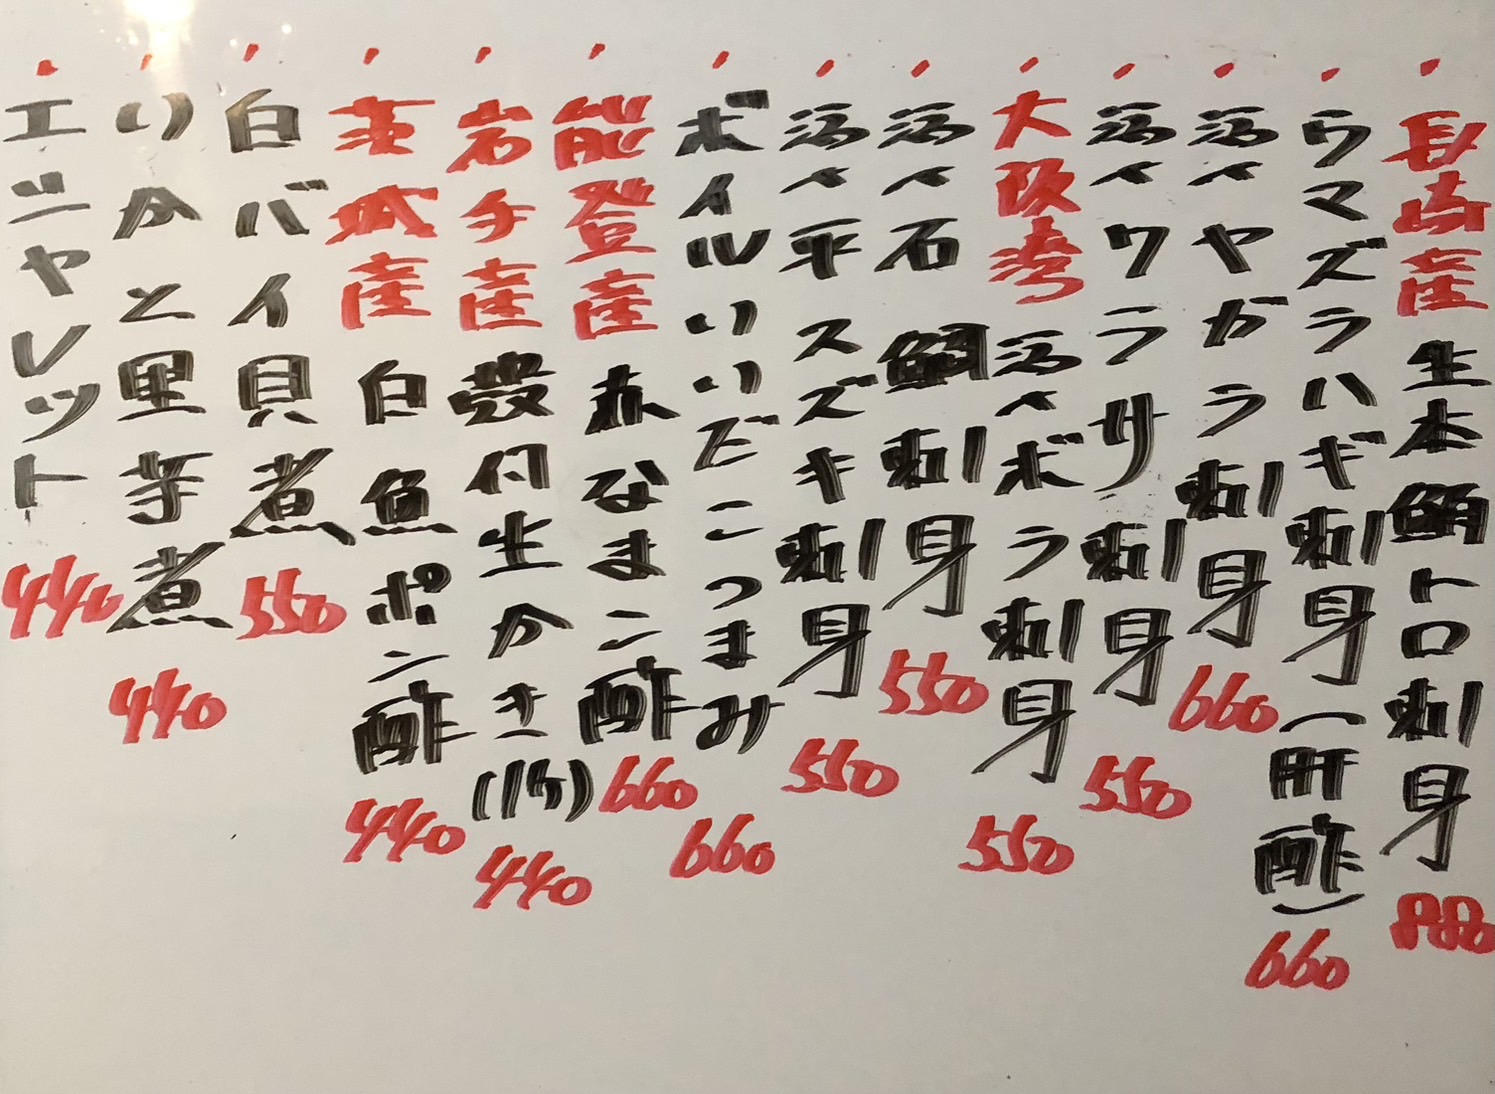 ・長崎産生本鮪トロ刺身 880
・ウマズラハギ刺身(肝酢) 660
・活〆ヤガラ刺身 660
・活〆ワラサ刺身 550
・大阪湾活〆ボラ刺身 550
・活〆石鯛刺身 550
・活〆平スズキ刺身 550
・ボイルいいだこつまみ 660
・能登産赤なまこ酢 660
・岩手産殻付生かき(1ヶ) 440
・茨城産白魚ポン酢 440
・白バイ貝煮 550
・いかと里芋煮 440
・エシャレット 440